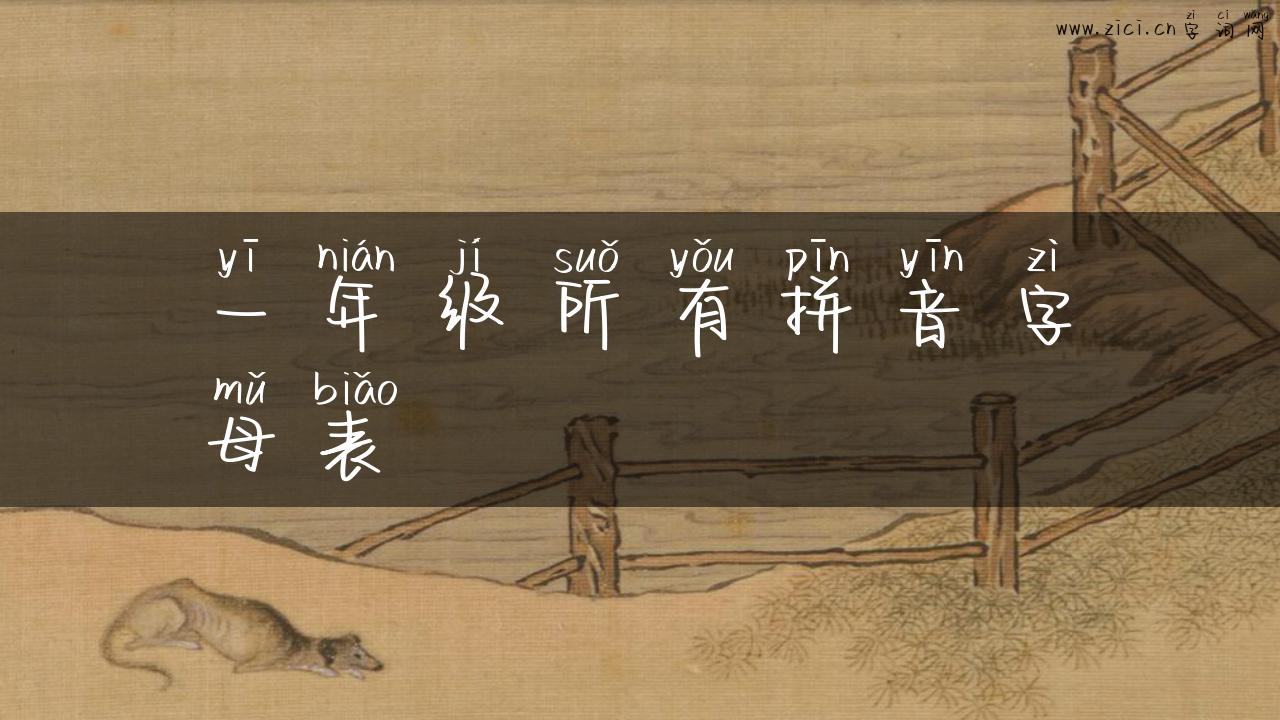 zi ci wang
www.zici.cn 字词网
yī nián jí suǒ yǒu pīn yīn zì
一年级所有拼音字
mǔ biǎo
母表